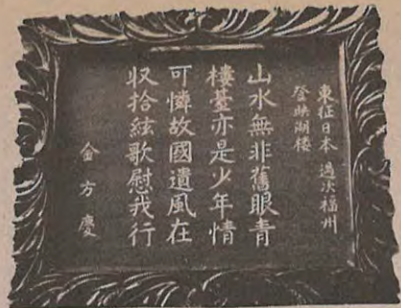 東征日本 過次福州
登映湖楼
山水無非舊眼靑
樓臺亦是少年情
可憐故國遺風在
収拾絃歌慰我行
金方慶